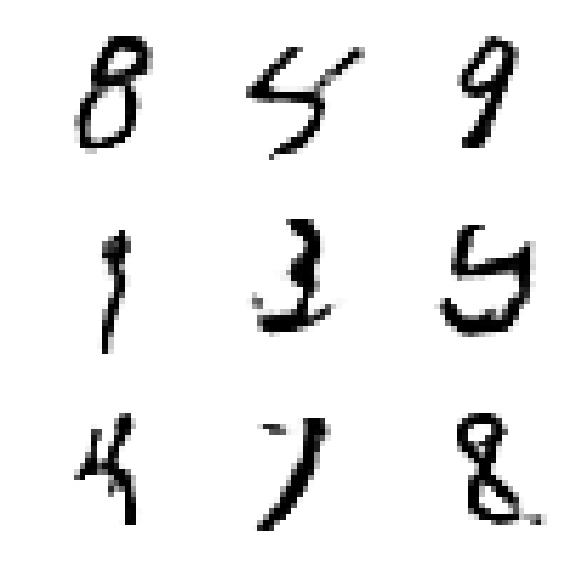 8 5 9
1 3 5
4 7 8